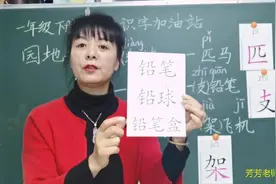 一年级下 识字加油站
园地
jiàng
匹马
zhī qiān
支铅笔
jià jī
架飞机
铅笔
铅球
铅笔盒
匹
支
架
芳芳老师